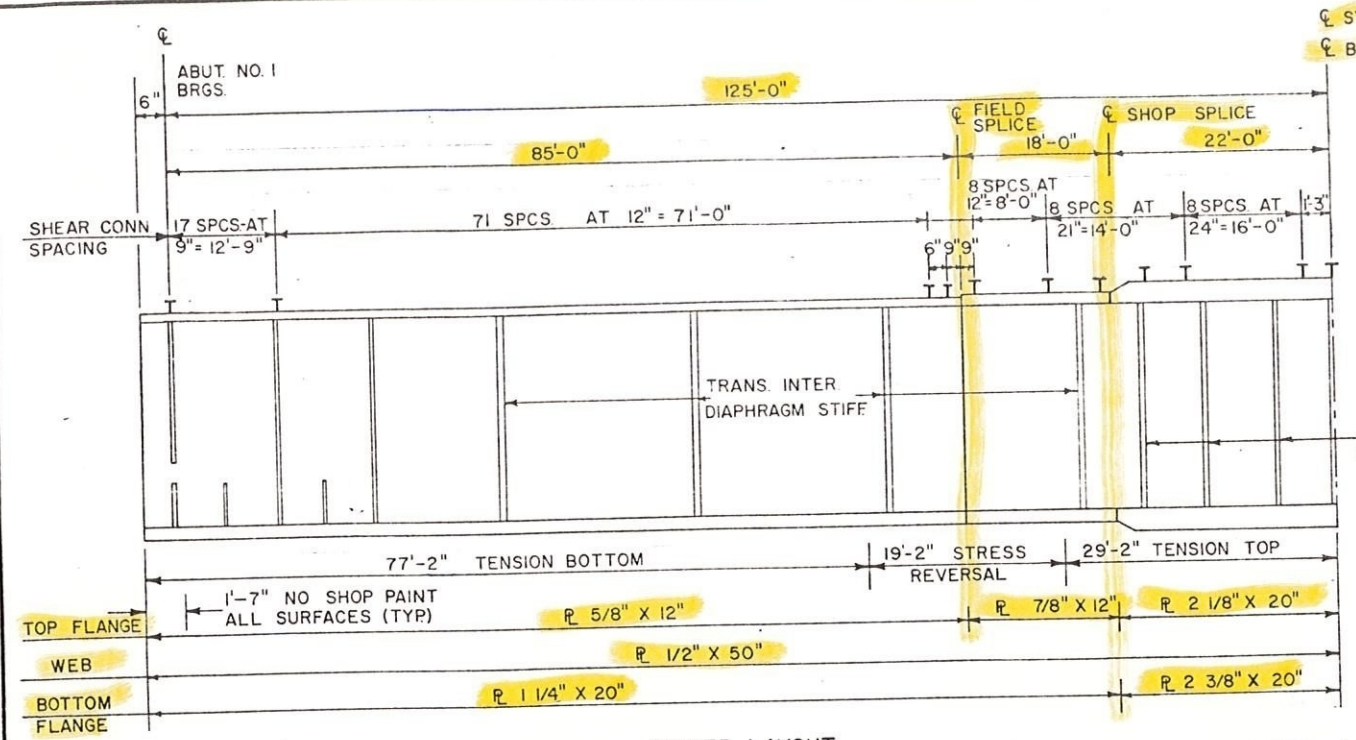 ℄ S
℄ B
℄
ABUT. NO. 1
BRGS.
6"
125'-0"
℄ FIELD
SPLICE
℄ SHOP SPLICE
85'-0"
18'-0"
22'-0"
SHEAR CONN
SPACING
17 SPCS-AT
9"= 12'-9"
71 SPCS. AT 12" = 71'-0"
8 SPCS AT
12"= 8'-0"
8 SPCS AT
21"= 14'-0"
8 SPCS. AT
24"= 16'-0"
1'-3"
6" 9" 9"
TRANS. INTER
DIAPHRAGM STIFF.
77'-2" TENSION BOTTOM
19'-2" STRESS
REVERSAL
29'-2" TENSION TOP
1'-7" NO SHOP PAINT
ALL SURFACES (TYP.)
TOP FLANGE
℄ 5/8" X 12"
℄ 7/8" X 12"
℄ 2 1/8" X 20"
WEB
℄ 1/2" X 50"
BOTTOM
FLANGE
℄ 1 1/4" X 20"
℄ 2 3/8" X 20"